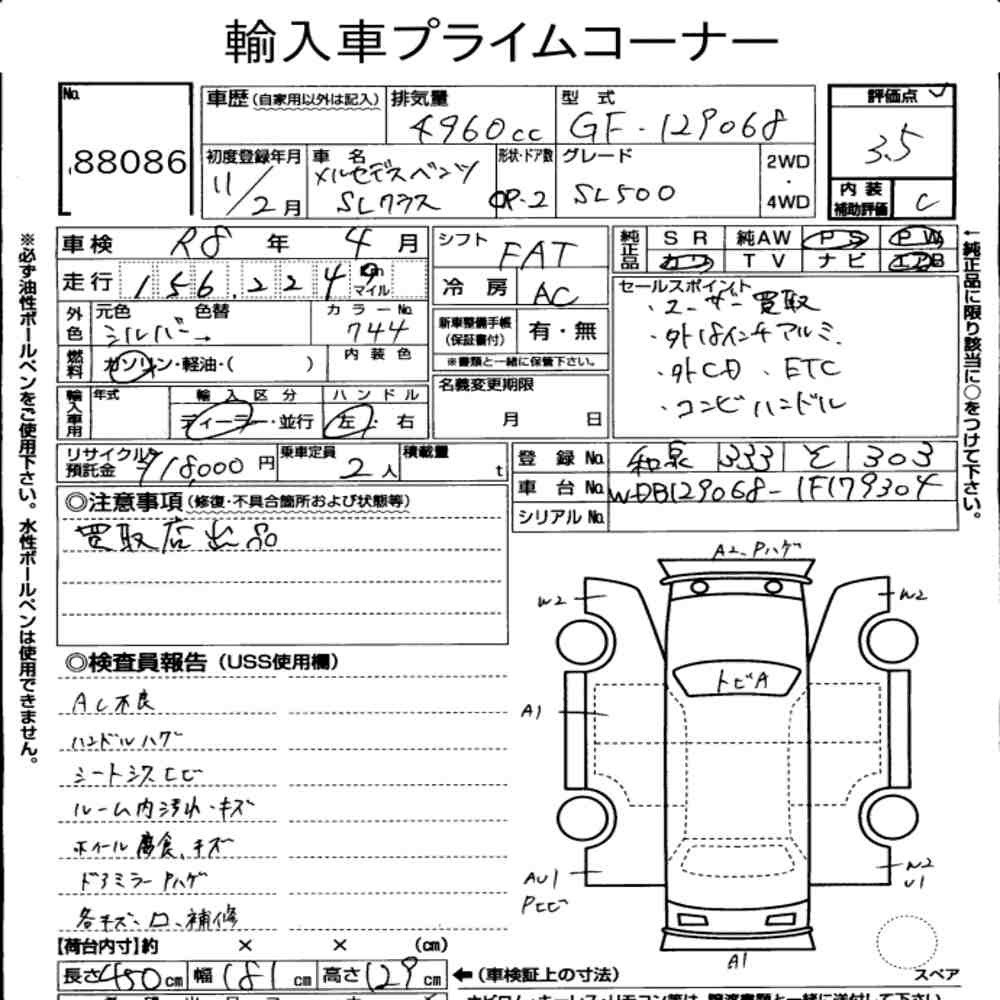 輸入車プライムコーナー
No. 88086
車歴(自家用以外は記入)
排気量 4960cc
型式 GF-129068
評価点 3.5
初度登録年月 11/2月
車名 メルセデスベンツ SLクラス
形状・ドア数 OP-2
グレード SL500
2WD・4WD
内装補助評価 C
車検 R8年4月
シフト FAT
純正品 SR 純AW PS PW
カワ TV ナビ エアB
走行 156,229 Km マイル
冷房 AC
セールスポイント
・ユーザー買取
・外18インチアルミ
・外CD、ETC
・コンビハンドル
外色 元色 シルバー 色替 →
カラーNo. 744
新車整備手帳(保証書付) 有・無
※書類と一緒に保管下さい。
燃料 ガソリン・軽油・( )
内装色
名義変更期限 月 日
輸入車用 年式
輸入区分 ディーラー・並行
ハンドル 左・右
リサイクル預託金 ¥18,000円
乗車定員 2人
積載量 t
登録No. 和泉 333 そ 303
車台No. WDB129068-1F179304
シリアルNo.
◎注意事項(修復・不具合箇所および状態等)
買取店出品
◎検査員報告(USS使用欄)
AC不良
ハンドルハゲ
シートシワヒビ
ルーム内汚れ・キズ
ホイール腐食、キズ
ドアミラーPハゲ
各キズ、凹、補修
A2、Pハゲ
W2
W2
トビA
A1
AU1
Pヒビ
W2
U1
A1
スペア
【荷台内寸】約 × × (cm)
長さ450cm 幅181cm 高さ129cm ←(車検証上の寸法)
※必ず油性ボールペンをご使用下さい。水性ボールペンは使用できません。
←純正品に限り該当に○をつけて下さい。